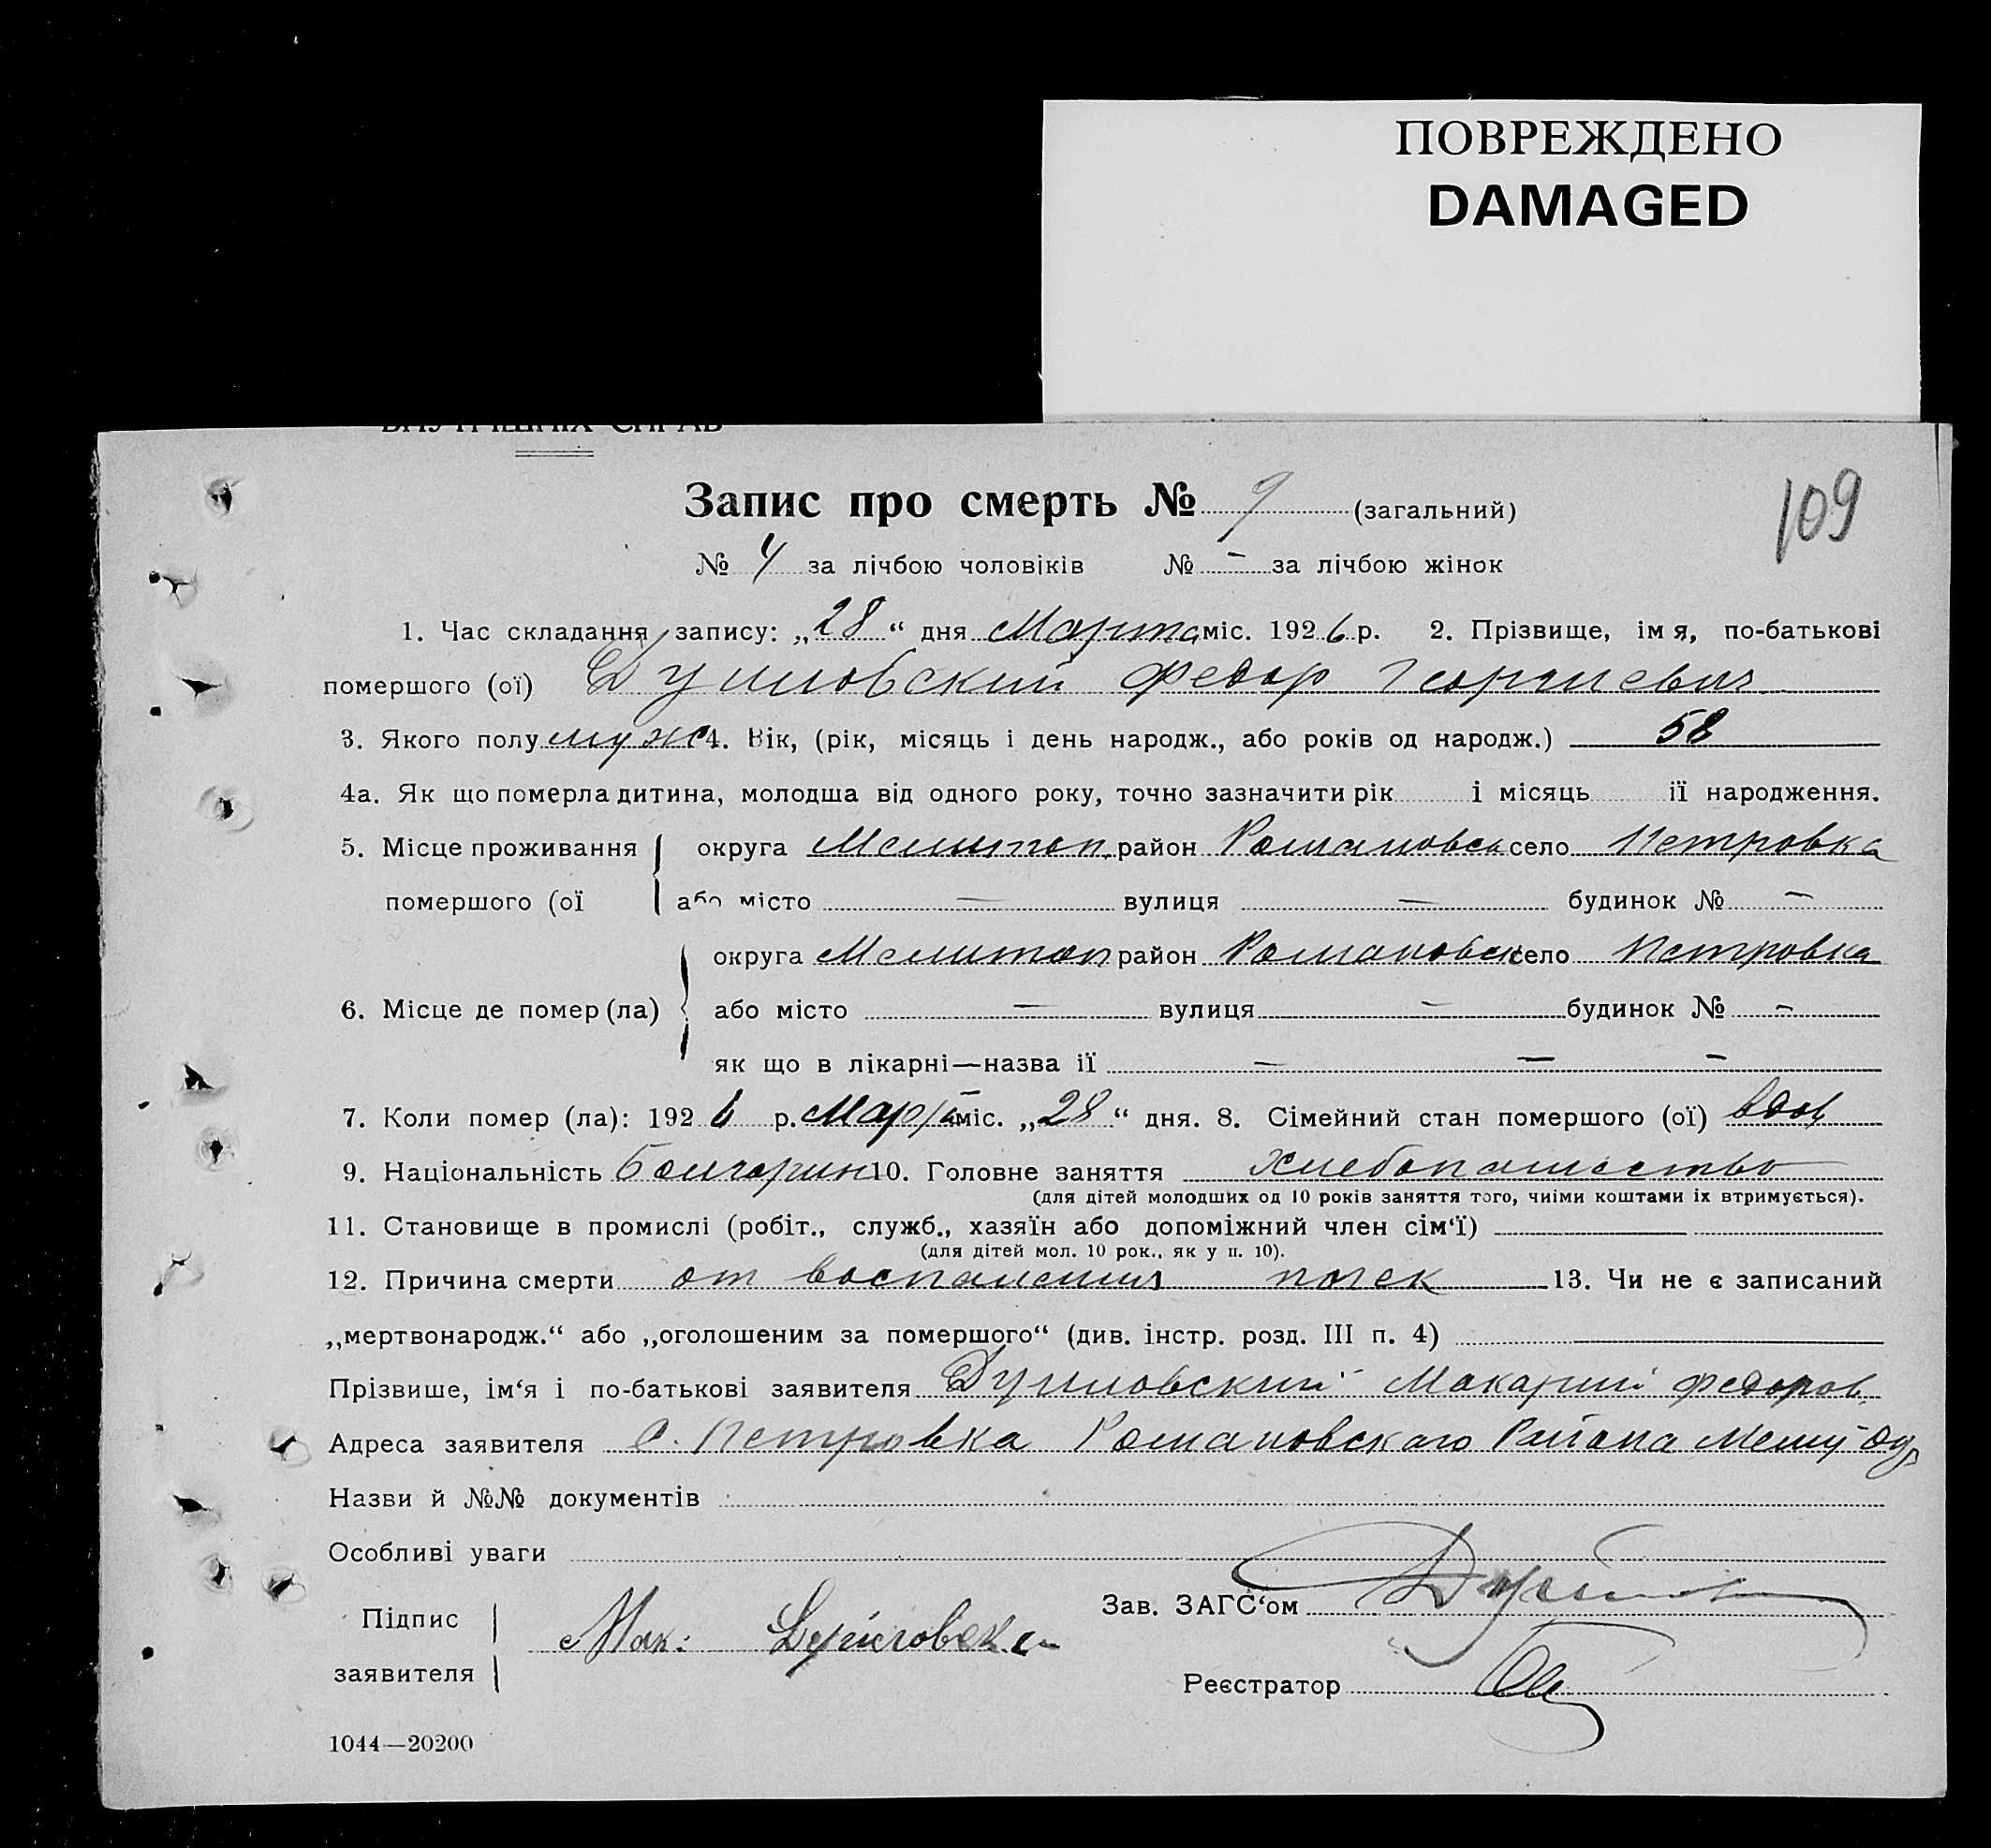 ПОВРЕЖДЕНО
DAMAGED
ВНУТРІШНІХ СПРАВ
109
Запис про смерть № 9 (загальний)
№ 4 за лічбою чоловіків № – за лічбою жінок
1. Час складання запису: „28“ дня Марта міс. 1926 р. 2. Прізвище, імя, по-батькові
помершого (ої) Душновский Федор Георгиевич
3. Якого полу муж 4. Вік, (рік, місяць і день народж., або років од народж.) 58
4а. Як що померла дитина, молодша від одного року, точно зазначити рік і місяць її народження.
5. Місце проживання округа Мелитоп. район Романовск село Петровка
помершого (ої або місто — вулиця — будинок № —
округа Мелитоп район Романовск село Петровка
6. Місце де помер (ла) або місто — вулиця — будинок № –
як що в лікарні—назва її — — –
7. Коли помер (ла): 1926 р. Марта міс. „28“ дня. 8. Сімейний стан помершого (ої) вдов
9. Національність Болгарин 10. Головне заняття Хлебопашество
(для дітей молодших од 10 років заняття того, чиїми коштами їх втримується).
11. Становище в промислі (робіт., служб., хазяїн або допоміжний член сім‘ї)
(для дітей мол. 10 рок., як у п. 10).
12. Причина смерти от воспаления почек 13. Чи не є записаний
„мертвонародж.“ або „оголошеним за помершого“ (див. інстр. розд. III п. 4)
Прізвише, ім‘я і по-батькові заявителя Душновский Макарий Федоров.
Адреса заявителя с. Петровка Романовскаго Района Мелит Окр
Назви й №№ документів
Особливі уваги
Зав. ЗАГС‘ом
Підпис
заявителя
Мак:
Реєстратор
1044—20200